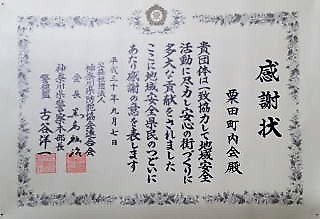 感謝状
粟田町内会殿
貴団体は一致協力して地域安全
活動に尽力し安心の街づくりに
多大な貢献をされました
ここに地域安全県民のつどいに
あたり感謝の意を表します
平成三十年九月七日
公益社団法人
神奈川県防犯協会連合会
会長
神奈川県警察本部長
警視監 古谷洋一